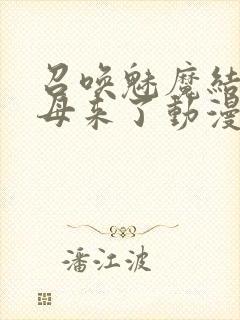 召喚魅魔結
母来了動漫
潘江波